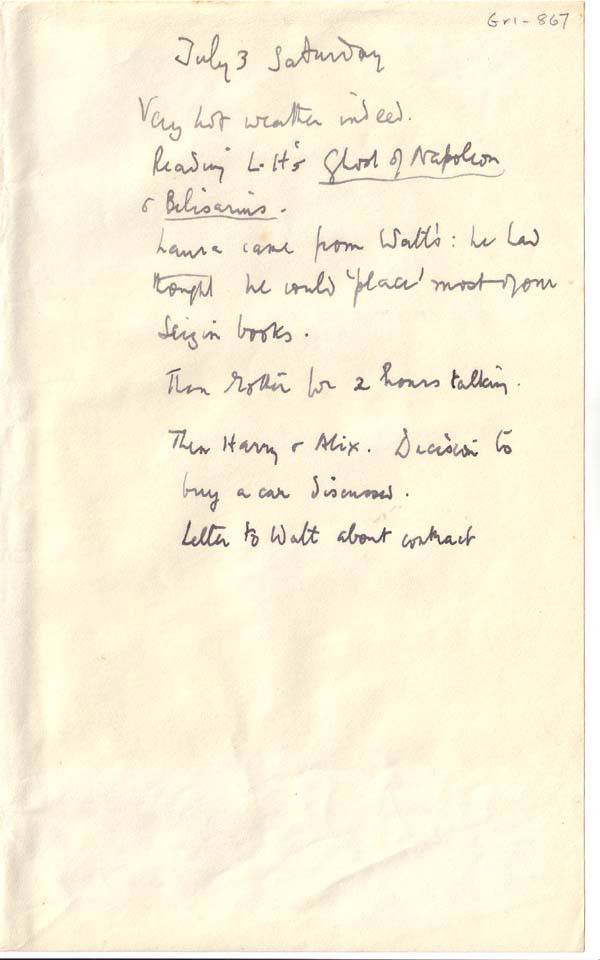 Gr1-867
July 3 Saturday
Very hot weather indeed.
Reading L.H's Ghost of Napoleon
& Belisarius.
Laura came from Watt's: he had
thought he could 'place' most of our
Seizin books.
Then for 2 hours talking.
Then Harry & Alix. Decision to
buy a car discussed.
Letter to Watt about contract